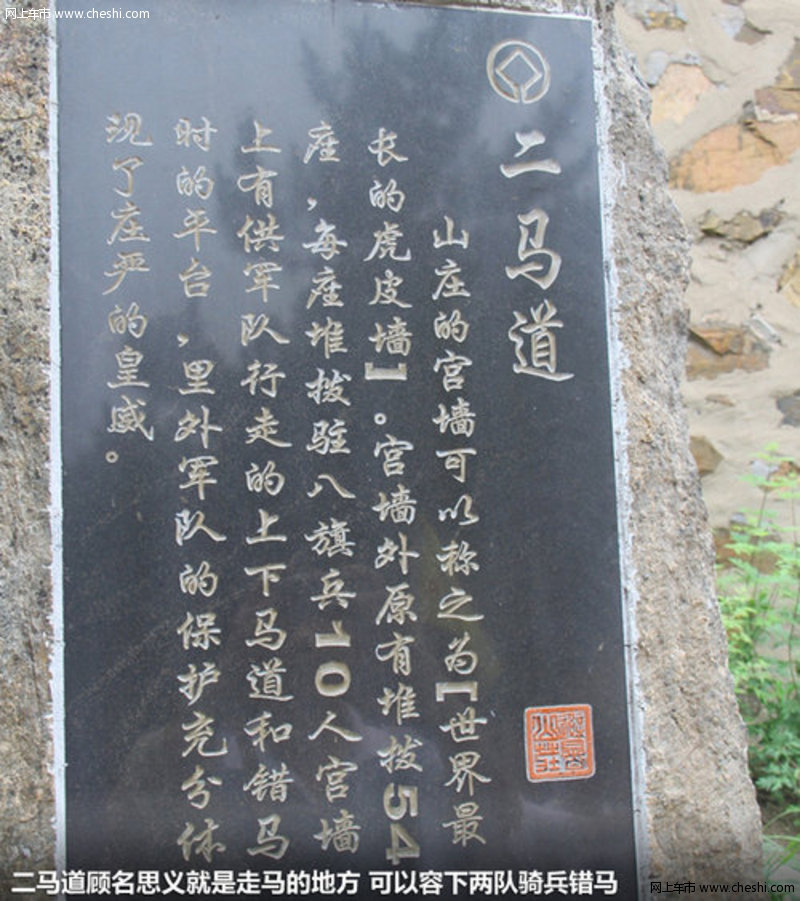 网上车市 www.cheshi.com
二马道
山庄的宫墙可以称之为【世界最
长的虎皮墙】。宫墙外原有堆拨54
座，每座堆拨驻八旗兵10人宫墙
上有供军队行走的上下马道和错马
时的平台，里外军队的保护充分体
现了庄严的皇威。
二马道顾名思义就是走马的地方 可以容下两队骑兵错马
网上车市 www.cheshi.com